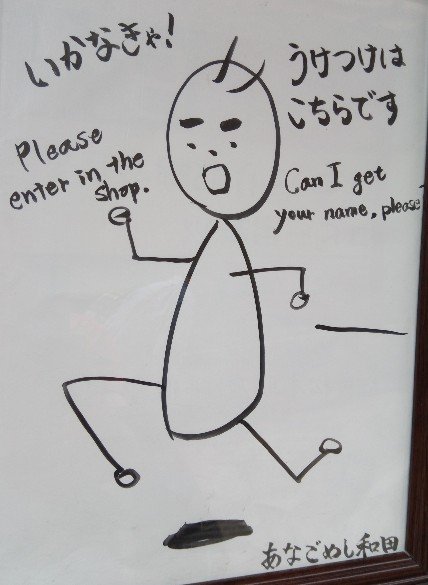 いかなきゃ!
うけつけは
こちらです
Please
enter in the
shop.
Can I get
your name, please
あなごめし和田